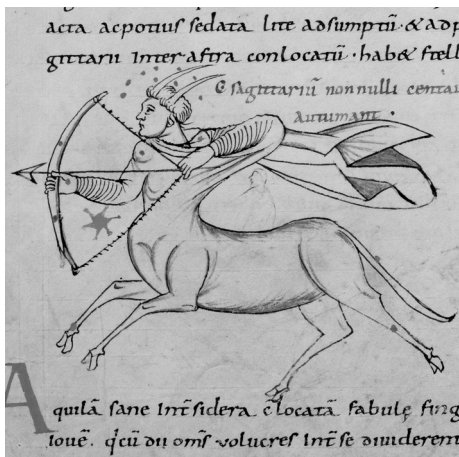 acta acpotius sedata lite adsumptū · & adp
gittarii inter astra conlocatū · hab& stell
sagittariū non nulli centau
Autumant ·
Aquilā sane int̄ sidera c̄locatā fabulę fing
iouē. q̄cū dii om̄s volucres int̄ se dividerent